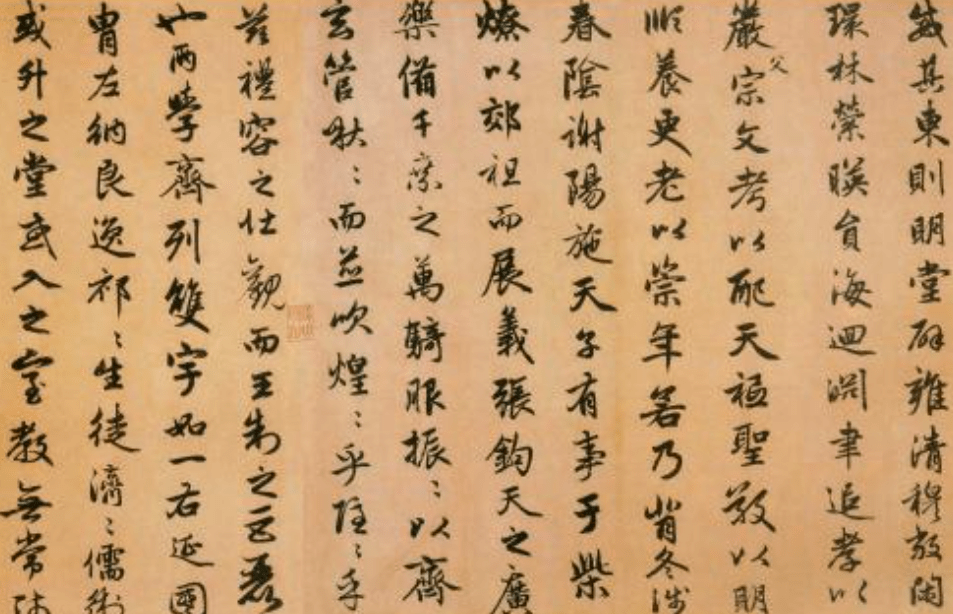 威其東則明堂辟雍清穆敞閑
環林縈暎員海迴淵聿追孝以
嚴父宗文考以配天祗聖敬以明
順養更老以崇年若乃背冬涉
春陰謝陽施天子有事于柴
燎以郊祖而展義張鈞天之廣
樂備千乘之萬騎服振〻以齊
玄管啾〻而並吹煌〻乎隱〻乎
茲禮容之壯觀而王制之巨麗
也兩學齊列雙宇如一右延國
胄左納良逸祁〻生徒濟〻儒術
或升之堂或入之室教無常師